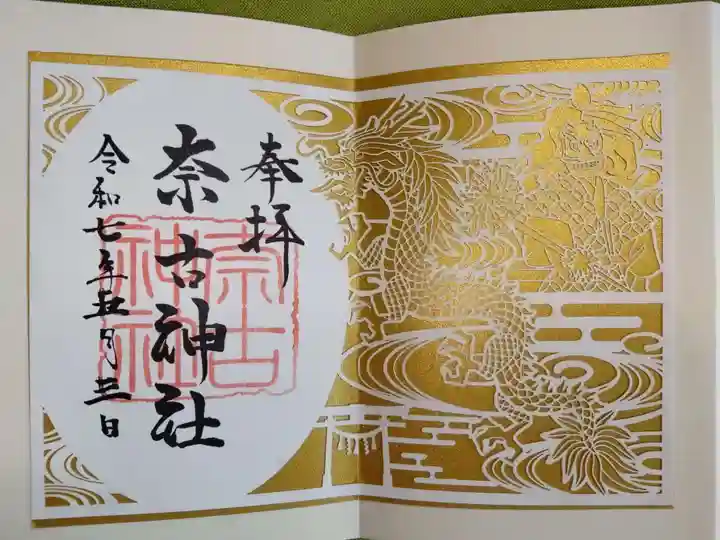 奉拝
奈古神社
奈古
神社
令和七年五月三日